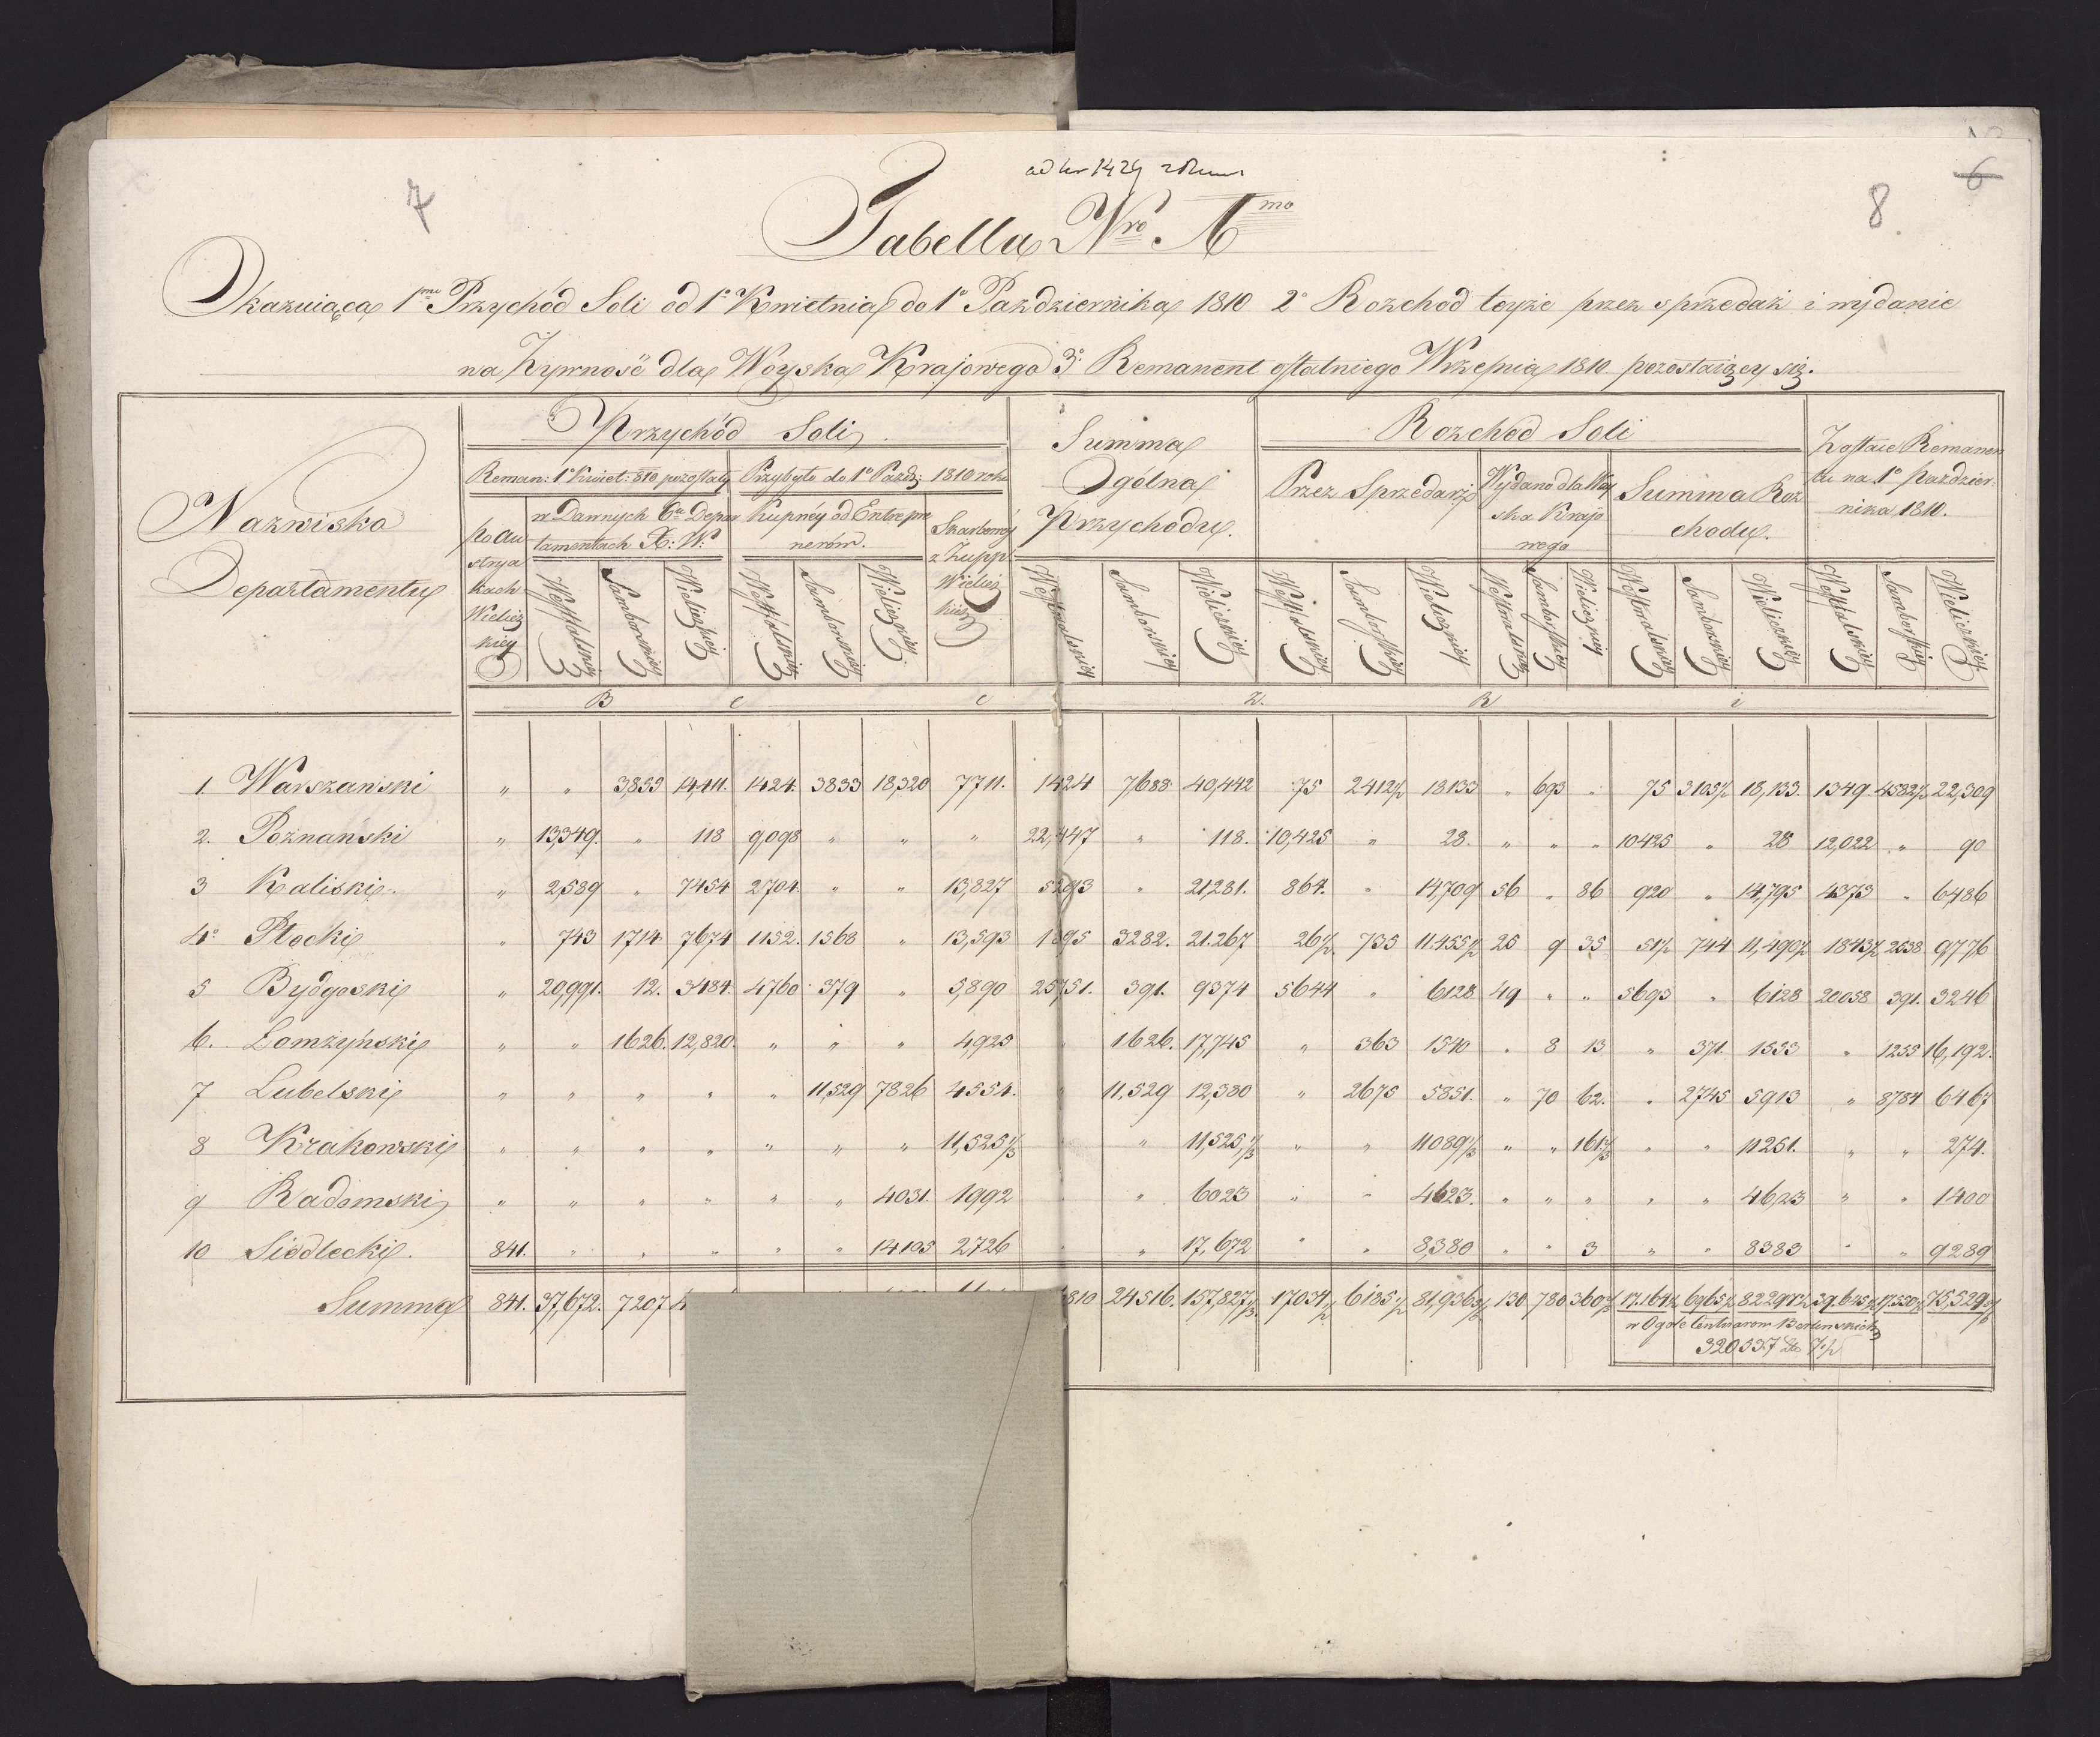 7
8.
6
Tabella Nro A mo
Okazuiąca 1mo Przychód Soli od 1o Kwietnia do 1o Pazdziernika 1810 2o Rozchod teyże przez sprzedaż i wydanie
na Żywność dla Woyska Krajowego 3o Remanent ostatniego Wrzesnia 1810 pozostaiący się.
Nazwiska
Departamentu
Przychód Soli
Summa
Ogólna
Przychodu.
Rozchod Soli
Zostaie Remanen
tu na 1o Pazdzier-
nika 1810.
Reman: 1o Kwiet: 810 pozostały
Przybyło do 1o Pazdz: 1810 roku
Przez Sprzedarz
Wydano dla Woy
ska Krajo
wego
Summa Roz
chodu.
po Au
strya
kach
Wielicz
kiey
w Dawnych 6u Depar
tamentach X: W:
Kupney od Entrepre
nerów.
Skarbowéy
z Zupp
Wielicz
kich
Westfalskiey Samborskiey Wieliczkiey Westfalskiey Samborskiey Wieliczkiey Westfalskiey Samborskiey Wieliczkiey Westfalskiey Samborskiey Wieliczkiey Westfalskiey Samborskiey Wieliczkiey Westfalskiey Samborskiey Wieliczkiey Westfalskiey Samborskiey Wieliczkiey
B e c z k i
1. Warszawski " " 3,853 14,411. 1424. 3833 18,320 7711. 1424 7,688 40,442 75 2412½ 18133 " 693 " 75 3105½ 18,133. 1349. 4582½ 22,309
2. Poznanski " 13,349. " 118 9,098 " " " 22,447 " 118. 10,425 " 28. " " " 10425 " 28 12,022 " 90
3 Kaliski. " 2,589 " 7454 2,704. " " 13,827 5293 " 21,281. 864. " 14,709 56 " 86 920 " 14,795 4373 " 6,486
4o Płocki " 743 1714 7674 1152. 1568 " 13,593 1895 3282. 21.267 26½ 735 11.455½ 25 9 35 51½ 744 11,490½ 1843½ 2538 9776
5 Bydgoski " 20,991. 12. 3484. 4760 379 " 5,890 25751. 391. 9374 5644 " 6128 49 " " 5693 " 6128 20058 391. 3246
6. Lomzyński " " 1626. 12,820. " " " 4,925 " 1626. 17,745 " 363 1540 " 8 13 " 371. 1553 " 1255 16,192.
7 Lubelski " " " " " 11,529 7826 4554. " 11,529 12,380 " 2675 5851. " 70 62. " 2745 5913 " 8784 6467
8 Krakowski " " " " " " " 11,525⅓ " 11,525⅓ " " 11089⅓ " " 161⅔ " " 11251. " " 274.
9 Radomski " " " " " " 4031. 1992 " 6023 " " 4623. " " " " " 4623 " " 1400
10 Siedlecki. 841. " " " " " 14105 2726 " " 17,672 " " 8,380 " " 3 " " 8383 " " 9289
Summa 841. 37,672. 7207 810 24516. 157,827⅓ 17034½ 6185½ 81,936 130. 780 360⅔ 17.164½ 6965½ 39.645½ 17.550½ 75,529
w Ogóle Centnarow Berlinskich
320537